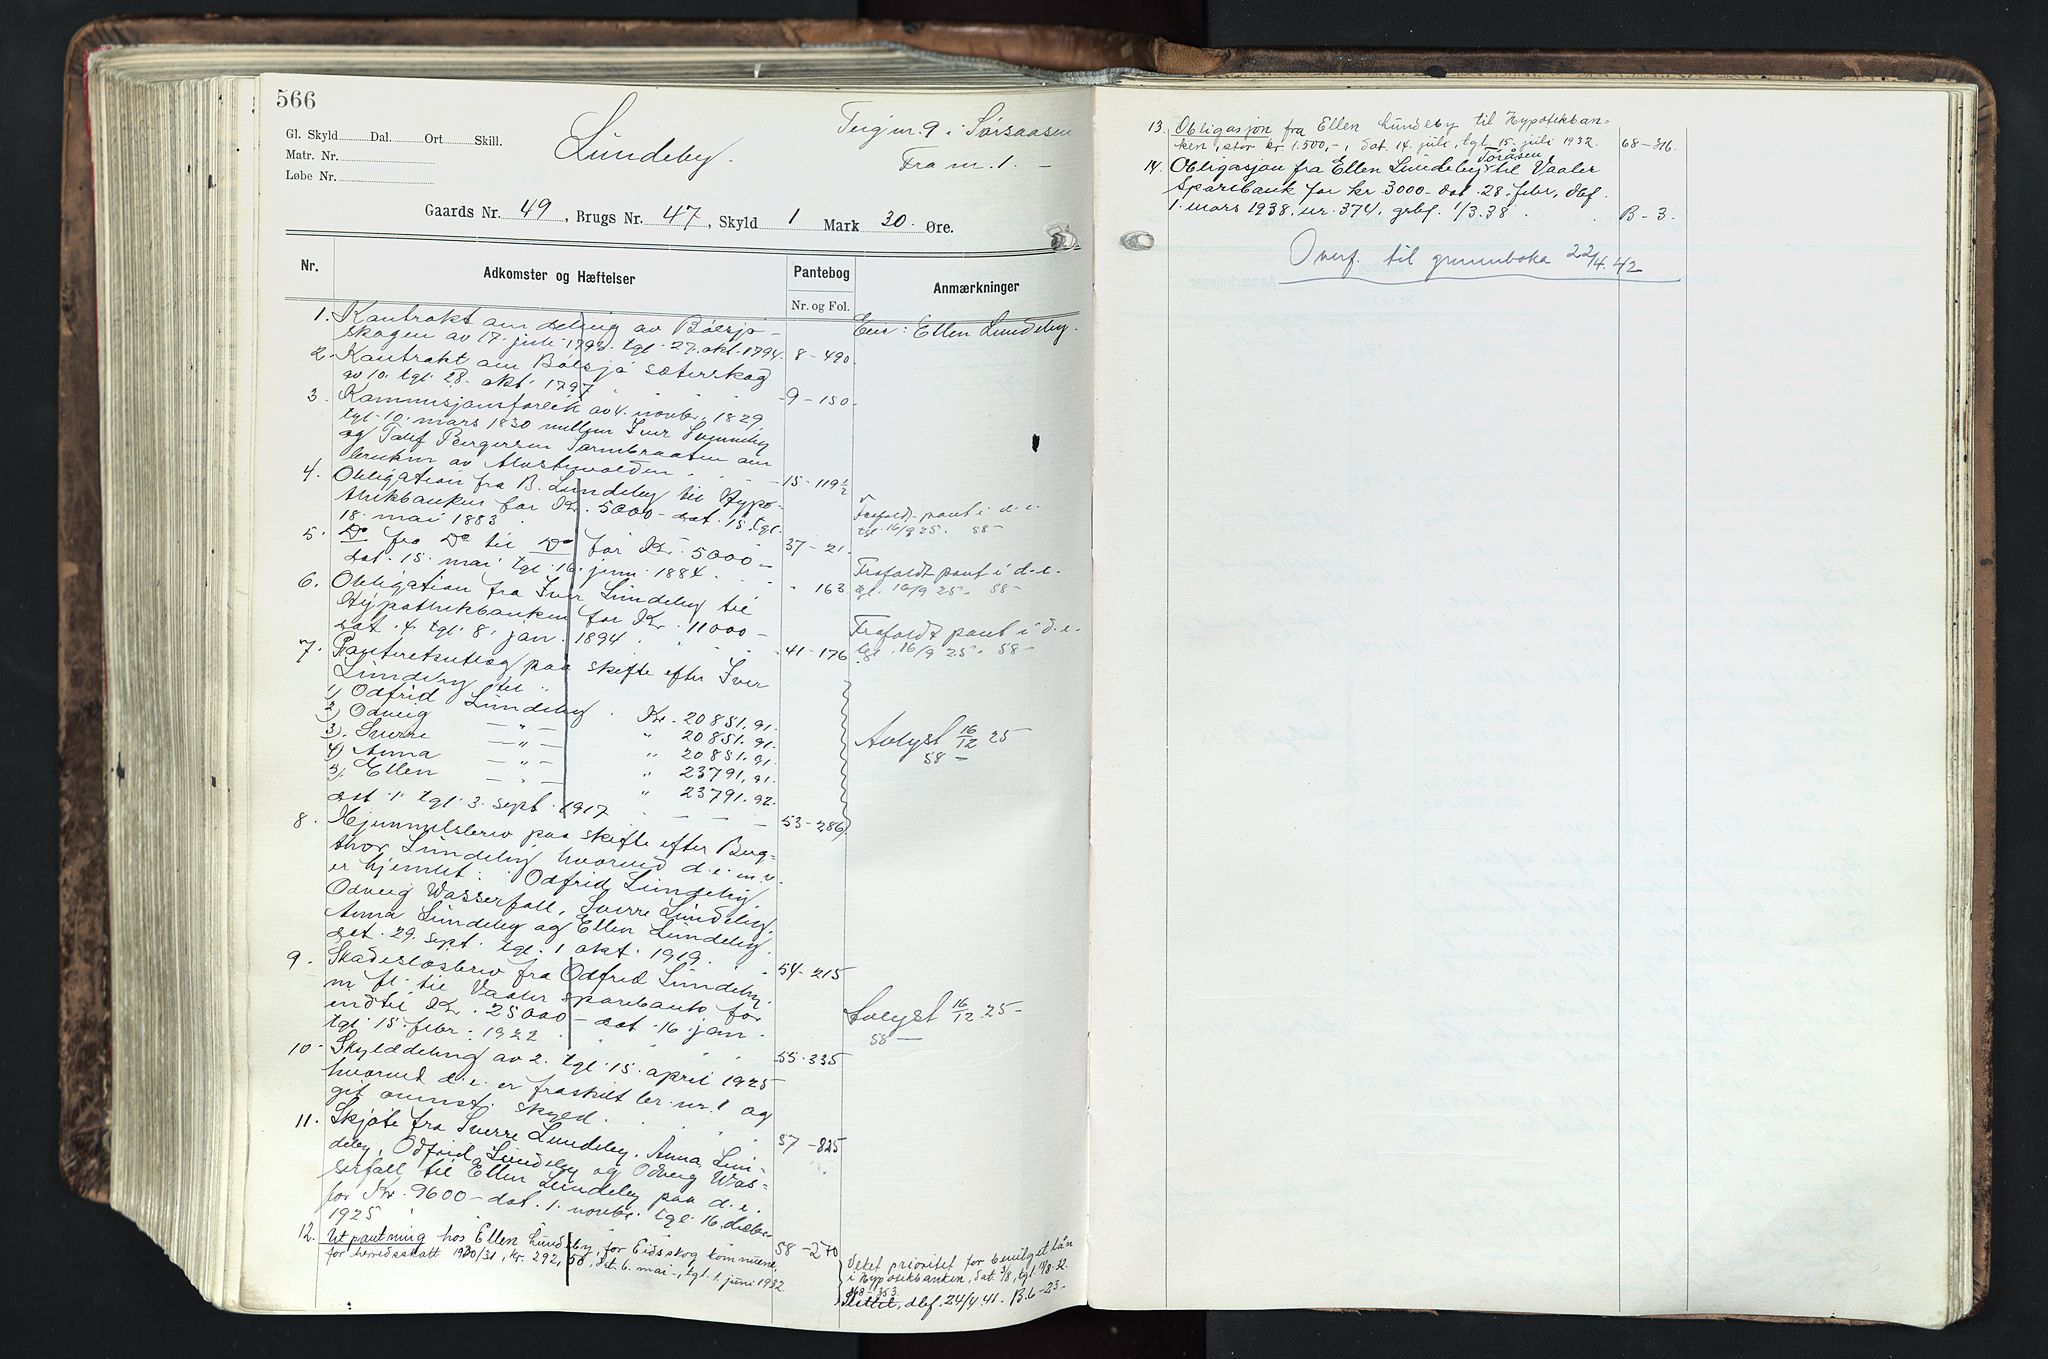 566
Gl. Skyld Dal. Ort Skill.
Matr. Nr.
Løbe Nr.
Lundeby.
Teig nr. 9 i Sørsaasen
Fra nr. 1. –
Gaards Nr. 49, Brugs Nr. 47, Skyld 1 Mark 30. Øre.
Nr. Adkomster og Hæftelser Pantebog Anmærkninger
Nr. og Fol.
1. Kontrakt om deling av Bølsjø-
skogen av 17. juli 1793. tgl. 27. okt. 1794. 8 – 490
Eier: Ellen Lundeby.
2. Kontrakt om Bølsjø sæterskog
av 10. tgl. 28. okt. 1797 9 – 150.
3. Kommisjonsforlik av 4. novbr. 1829,
tgl. 10. mars 1830 mellem Iver
og Bergersen om
bruken av 15 – 119½
4. Obligation fra B. Lundeby til Hypo-
thekbanken for Kr. 5000 – dat. 15. tgl.
18. mai 1883. 37 – 21.
Frafaldt pant i d. e.
tgl. 16/9 25. 58 –
5. Do fra Do til Do for Kr. 5000 –
dat. 15. mai, tgl. 16. juni 1884. " 163
Frafaldt pant i d. e.
tgl. 16/9 25. 58 –
6. Obligation fra Iver Lundeby til
Hypothekbanken for Kr. 11000 –
dat. 4. tgl. 8. jan. 1894. 41 – 176
Frafaldt pant i d. e.
tgl. 16/9 25. 58 –
7. Panteretsutlæg paa skifte efter Iver
Lundeby til
1) Odfrid Lundeby. Kr. 20851.91.
2) Odveig — " — " 20851.91.
3). Sverre — " — " 20851.91
4) Anna — " — " 23791.91.
5) Ellen — " — " 23791.92.
dat. 1. tgl. 3. sept. 1917 53 – 286.
Avlyst 16/12 25
58 –
8. Hjemmelsbrev paa skifte efter Berg-
thor Lundeby, hvorved d. e. m. v.
er hjemlet: Odfrid Lundeby,
Odveig Wasserfall, Sverre Lundeby,
Anna Lundeby og Ellen Lundeby
dat. 29. sept. tgl. 1 okt. 1919. 54 – 215
9. Skadesløsbrev fra Odfrid Lundeby
m. fl. til Vaaler sparebank for
indtil Kr. 25000 – dat. 16. jan.
tgl. 15. febr. 1922 55 – 335
Avlyst 16/12 25 –
58 —
10. Skylddeling av 2. tgl. 15. april 1925
hvorved d. e. er fraskilt br. nr. 1 og
git ovennst. skyld. 57 – 825
11. Skjøte fra Sverre Lundeby, Anna Lun-
deby, Odfrid Lundeby og Odveig Was-
serfall til Ellen Lundeby paa d. e.
for Kr. 9600 – dat. 1. novbr. tgl. 16. decbr.
1925 58 – 270
12. Utpantning hos Ellen Lundeby, for Eidsskog kommune,
for herredsskatt 1930/31, kr. 292,50, dat. 6. mai –, tgl. 1. juni 1932
Veket prioritet for bevilget lån
i Hypotekbanken, dat. 3/8, tgl. 11/8 32.
68 – 353.
Slettet, dbf. 24/4. 41. B. 6 – 23 –
13. Obligasjon fra Ellen Lundeby til Hypotekban-
ken, stor kr. 1.500,–, dat. 14. juli, tgl. 15. juli 1932. 68 – 316.
14. Obligasjon fra Ellen Lundeby Toråsen til Vaaler
Sparebank for kr 3000 – dat. 28. febr. dbf.
1. mars 1938. nr. 374. grbf. 1/3. 38. B – 3.
Overf. til grunnboka 22/4. 42